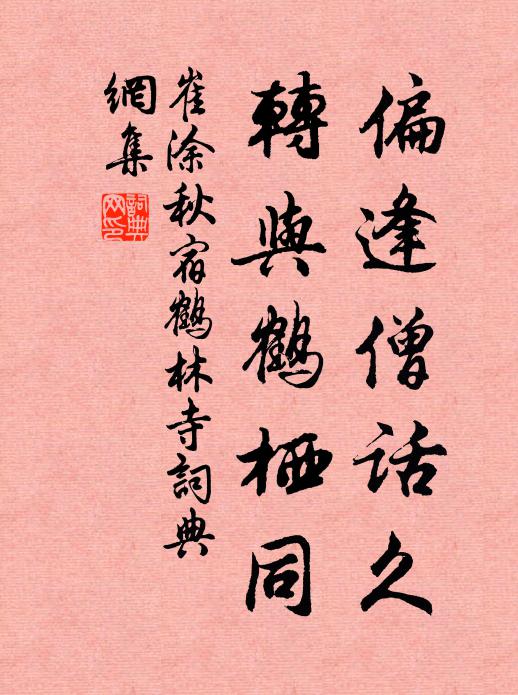 偏逢僧話久
轉與鶴栖同
崔涂秋宿鶴林寺詞典
網集
詞典
网印